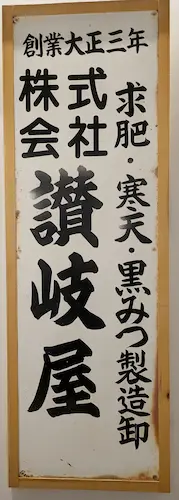 創業大正三年
求肥・寒天・黒みつ製造卸
株式会社
讃岐屋